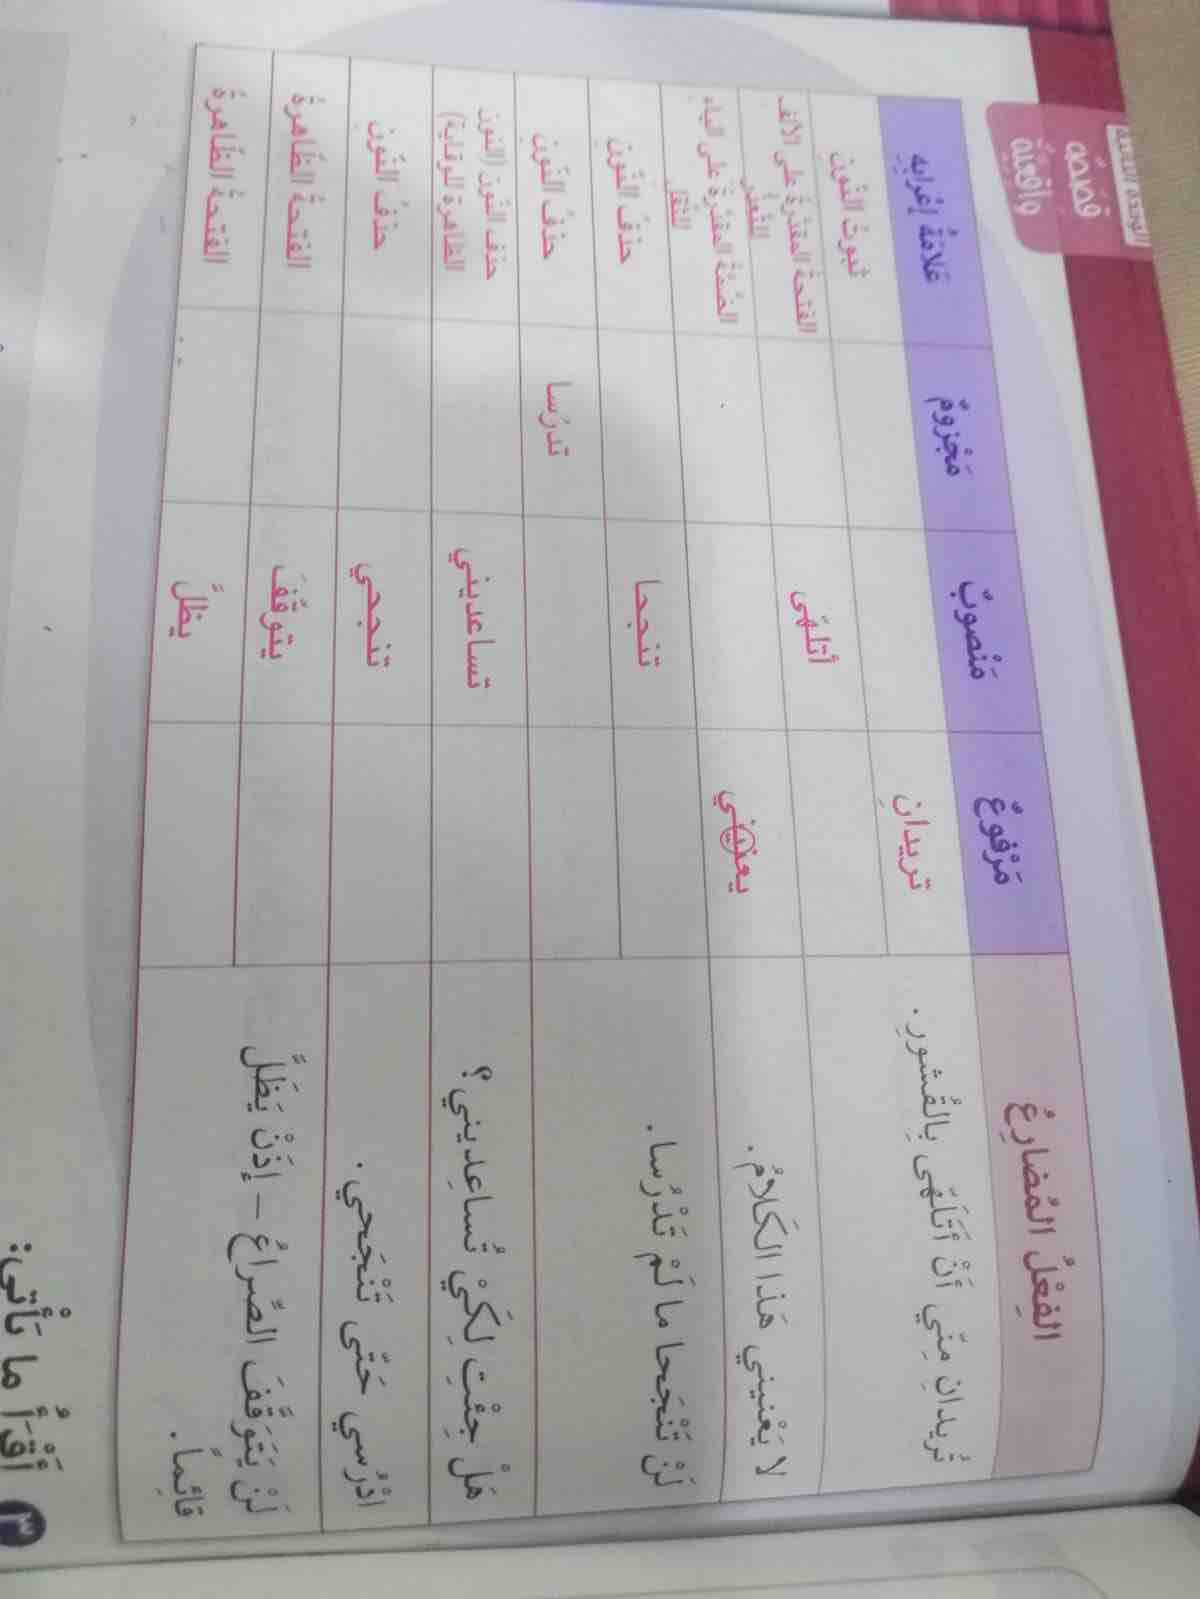 قصصٌ
واقعيّة
الفِعْلُ المُضارِعُ مَرْفوعٌ مَنْصوبٌ مَجْزومٌ عَلامَةُ إعْرابِهِ
تُريدانِ مِنّي أَنْ أَتَلَهّى بِالقُشورِ. تريدانِ ثبوت النّون
أتلهّى الفتحة المقدّرة على الألف
للتعذّر
لا يَعْنيني هَذا الكَلامُ. يعنيني الضّمّة المقدّرة على الياء
للثقل
لَنْ تَنْجَحا ما لَمْ تَدْرُسا. تنجحا حذف النّون
تدرُسا حذف النّون
هَلْ جِئْتِ لِكَيْ تُساعِديني؟ تساعديني حذف النون (النون
الظاهرة للوقاية)
ادْرُسي حَتّى تَنْجَحي. تنجحي حذف النّون
لَنْ يَتَوَقَّفَ الصِّراعُ – إِذَنْ يَظَلَّ
قائِمًا. يتوقّفَ الفتحة الظّاهرة
يظلَّ الفتحة الظّاهرة
٣ أَقْرَأُ ما يَأْتي: